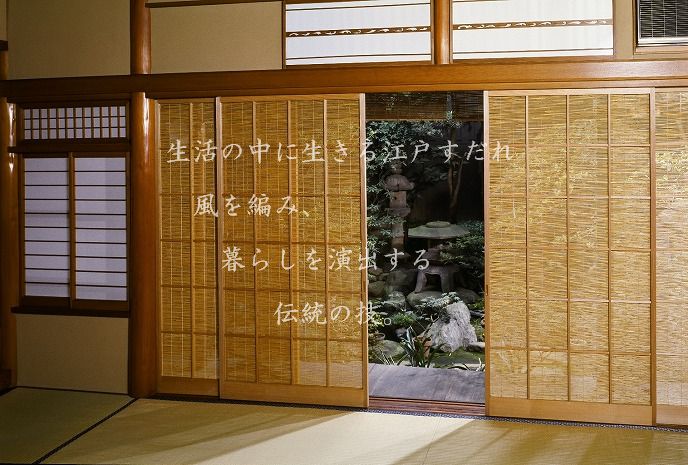 生活の中に生きる江戸すだれ
風を編み、
暮らしを演出する
伝統の技。